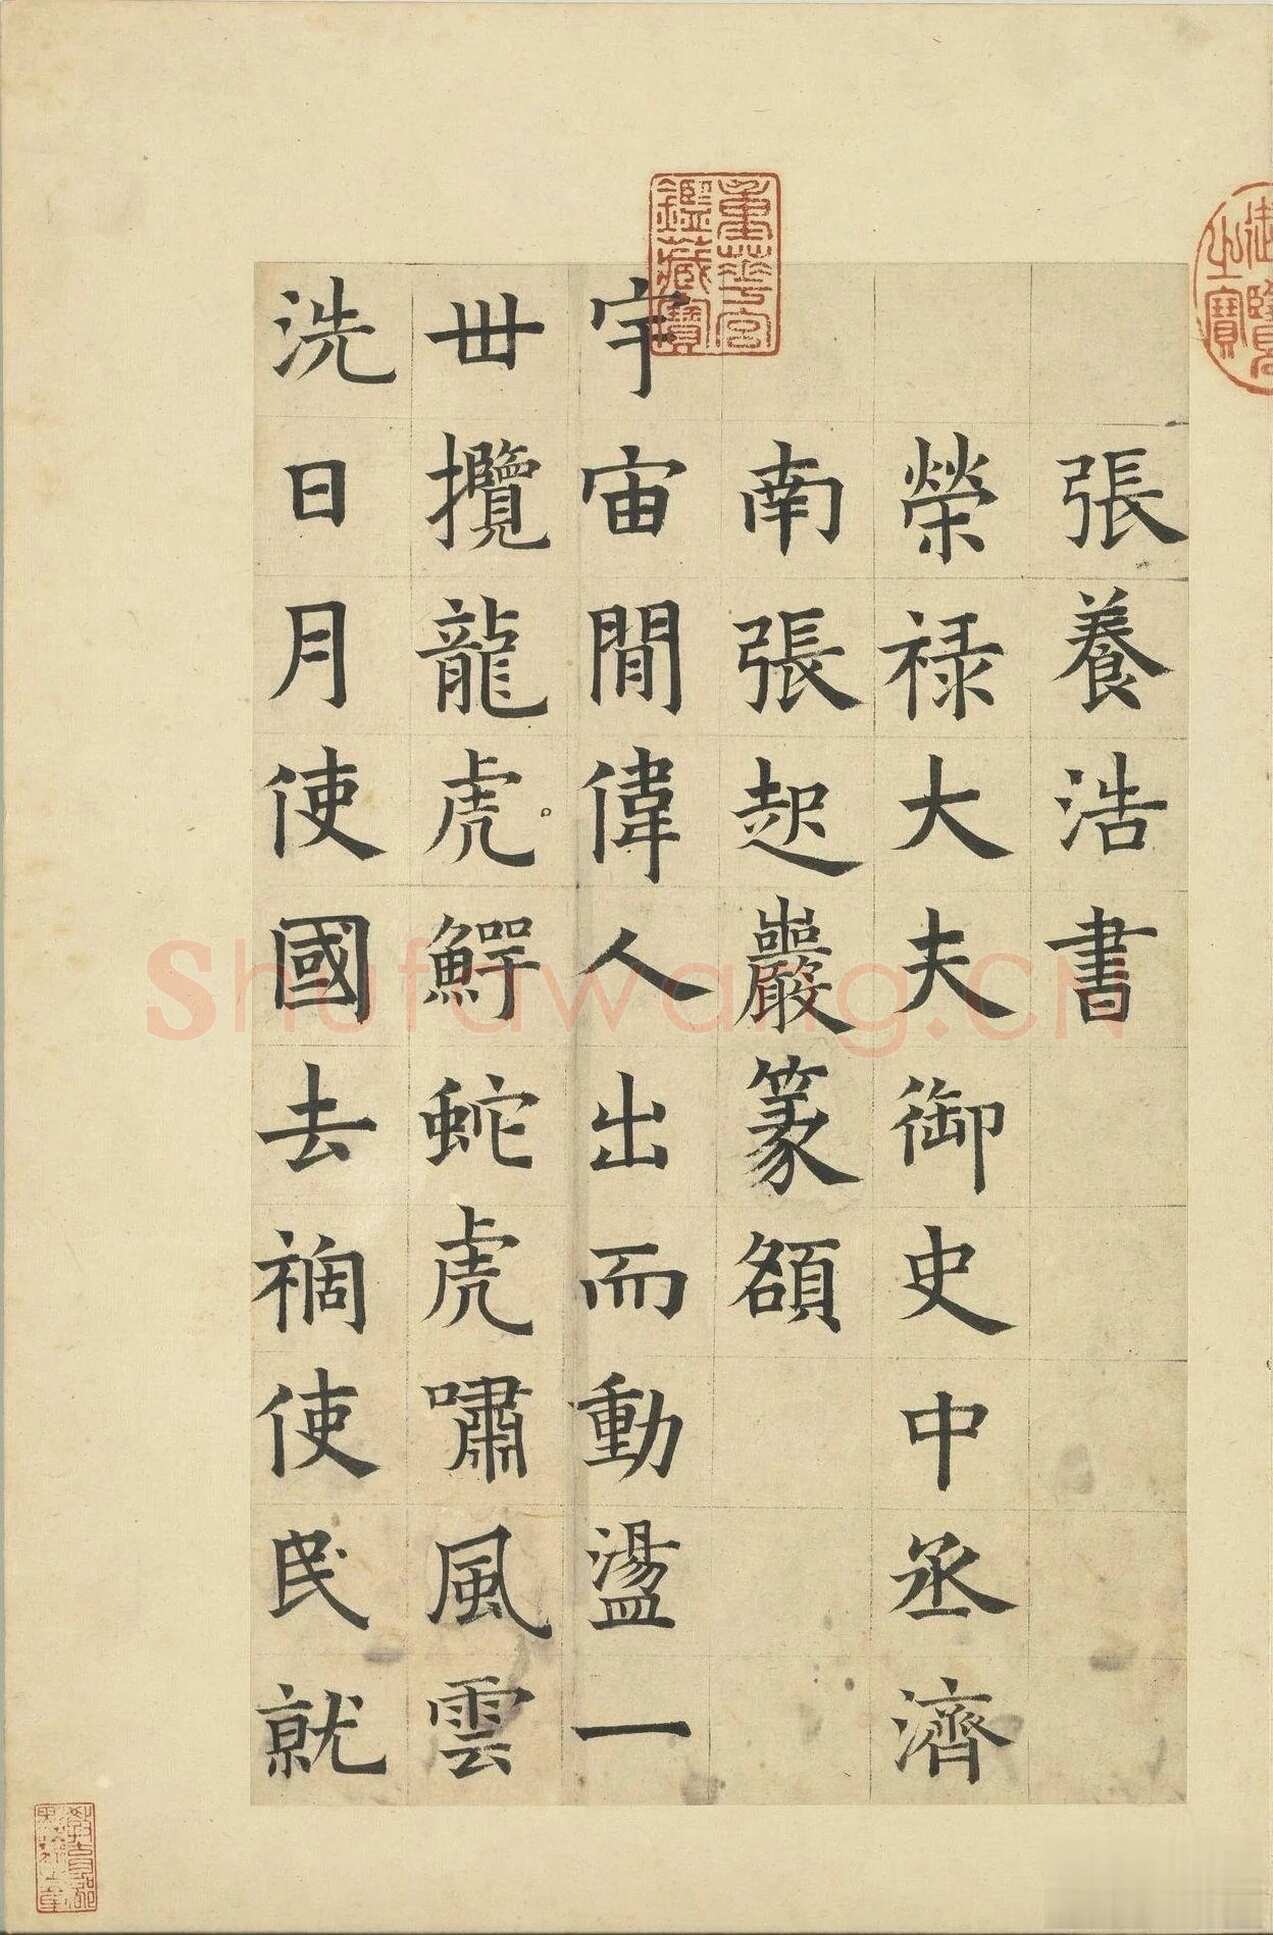 張養浩書
榮禄大夫御史中丞濟
南張起巖篆額
宇宙間偉人出而動盪一
丗攬龍虎鰐蛇虎嘯風雲
洗日月使國去禍使民就
重華宮鑑藏寶
御覽之寶
Shufawang.CN